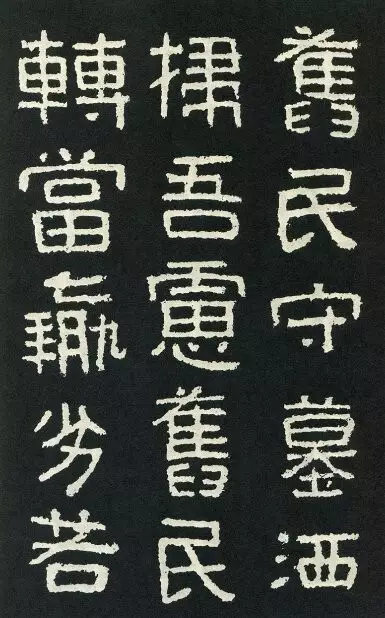 舊民守墓洒
掃吾慮舊民
轉當羸劣若